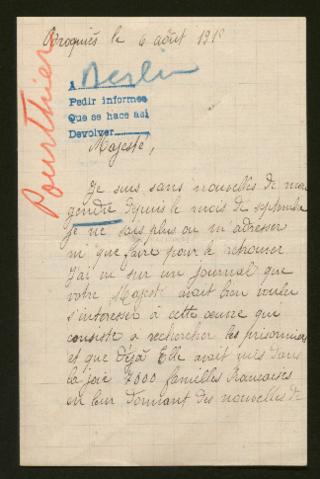 Broquiès le 6 août 191
Pourthier
A Berlin
Pedir informes
Que se hace asi
Devolver
Majesté,
Je suis sans nouvelles de mon
gendre depuis le mois de septembre
je ne sais plus ou m'adresser
ni que faire pour le retrouver
J'ai vu sur un journal que
votre Majesté avait bien voulu
s'interesser à cette œuvre qui
consiste a rechercher les prisonniers
et que déjà Elle avait mis dans
la joie 7000 familles Francaises
en leur donnant des nouvelles de